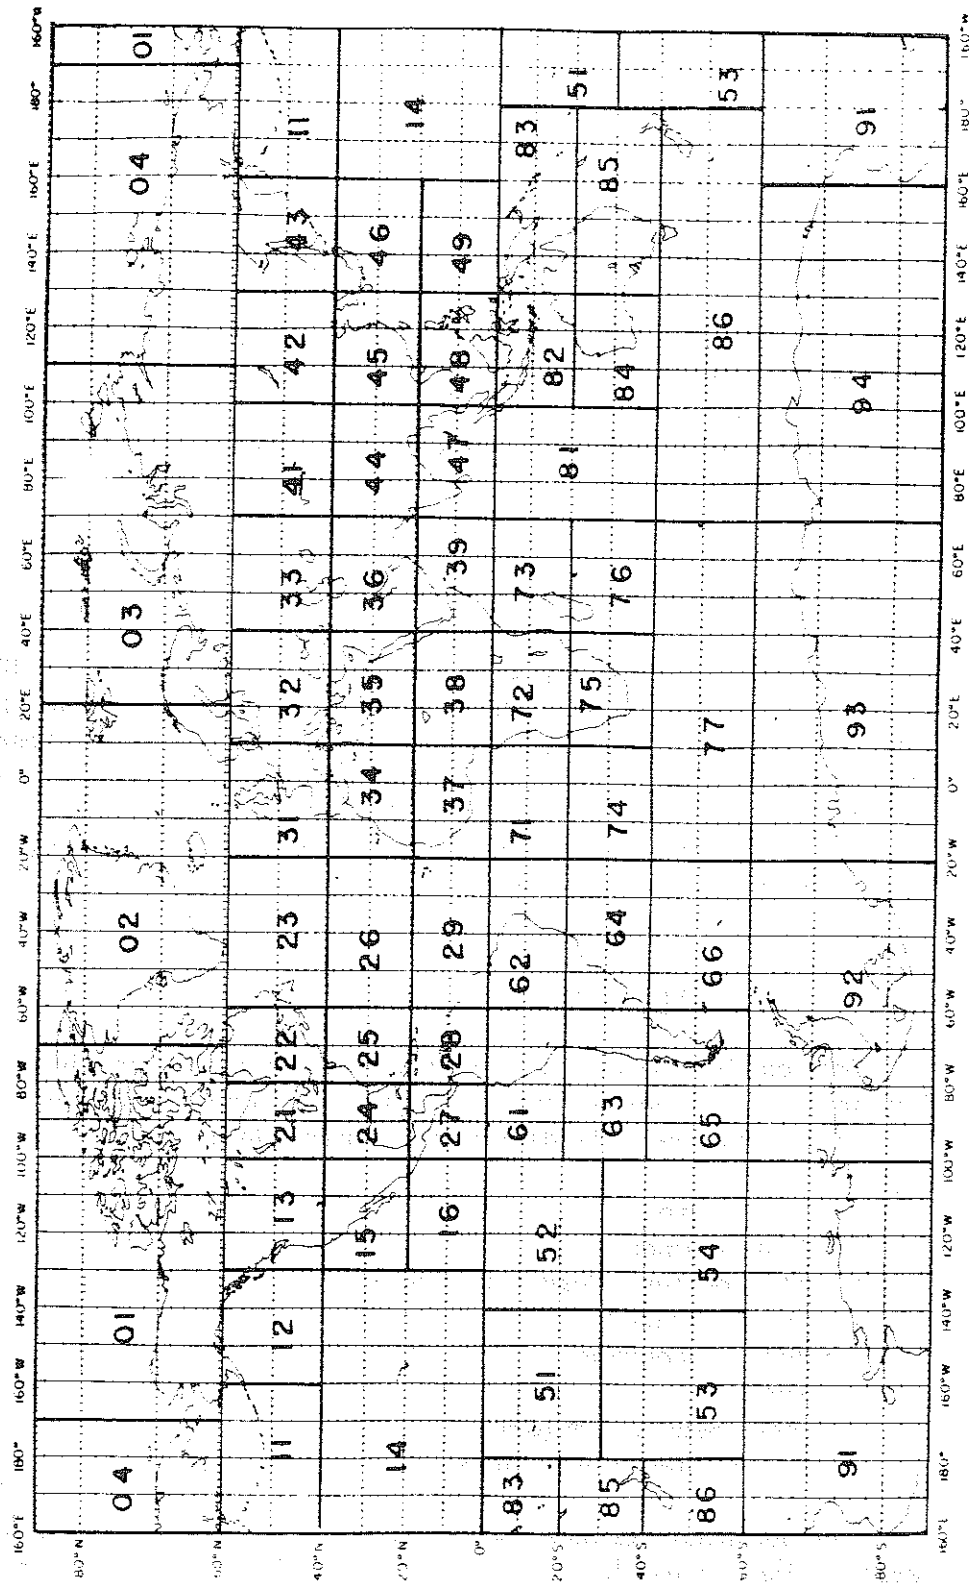 160°E 180° 160°W 140°W 120°W 100°W 80°W 60°W 40°W 20°W 0° 20°E 40°E 60°E 80°E 100°E 120°E 140°E 160°E 180° 160°W
80°N
04 01 02 03 04 01
60°N
11 12 13 21 22 23 31 32 33 41 42 43 11
40°N
14 15 24 25 26 34 35 36 44 45 46 14
20°N
16 27 28 29 37 38 39 47 48 49
0°
83 61 62 71 72 73 83
51 52 81 82 51
20°S
85 63 64 74 75 76 84 85
40°S
86 53 54 65 66 77 86 53
60°S
91 92 93 94 91
80°S
160°E 180° 160°W 140°W 120°W 100°W 80°W 60°W 40°W 20°W 0° 20°E 40°E 60°E 80°E 100°E 120°E 140°E 160°E 180° 160°W